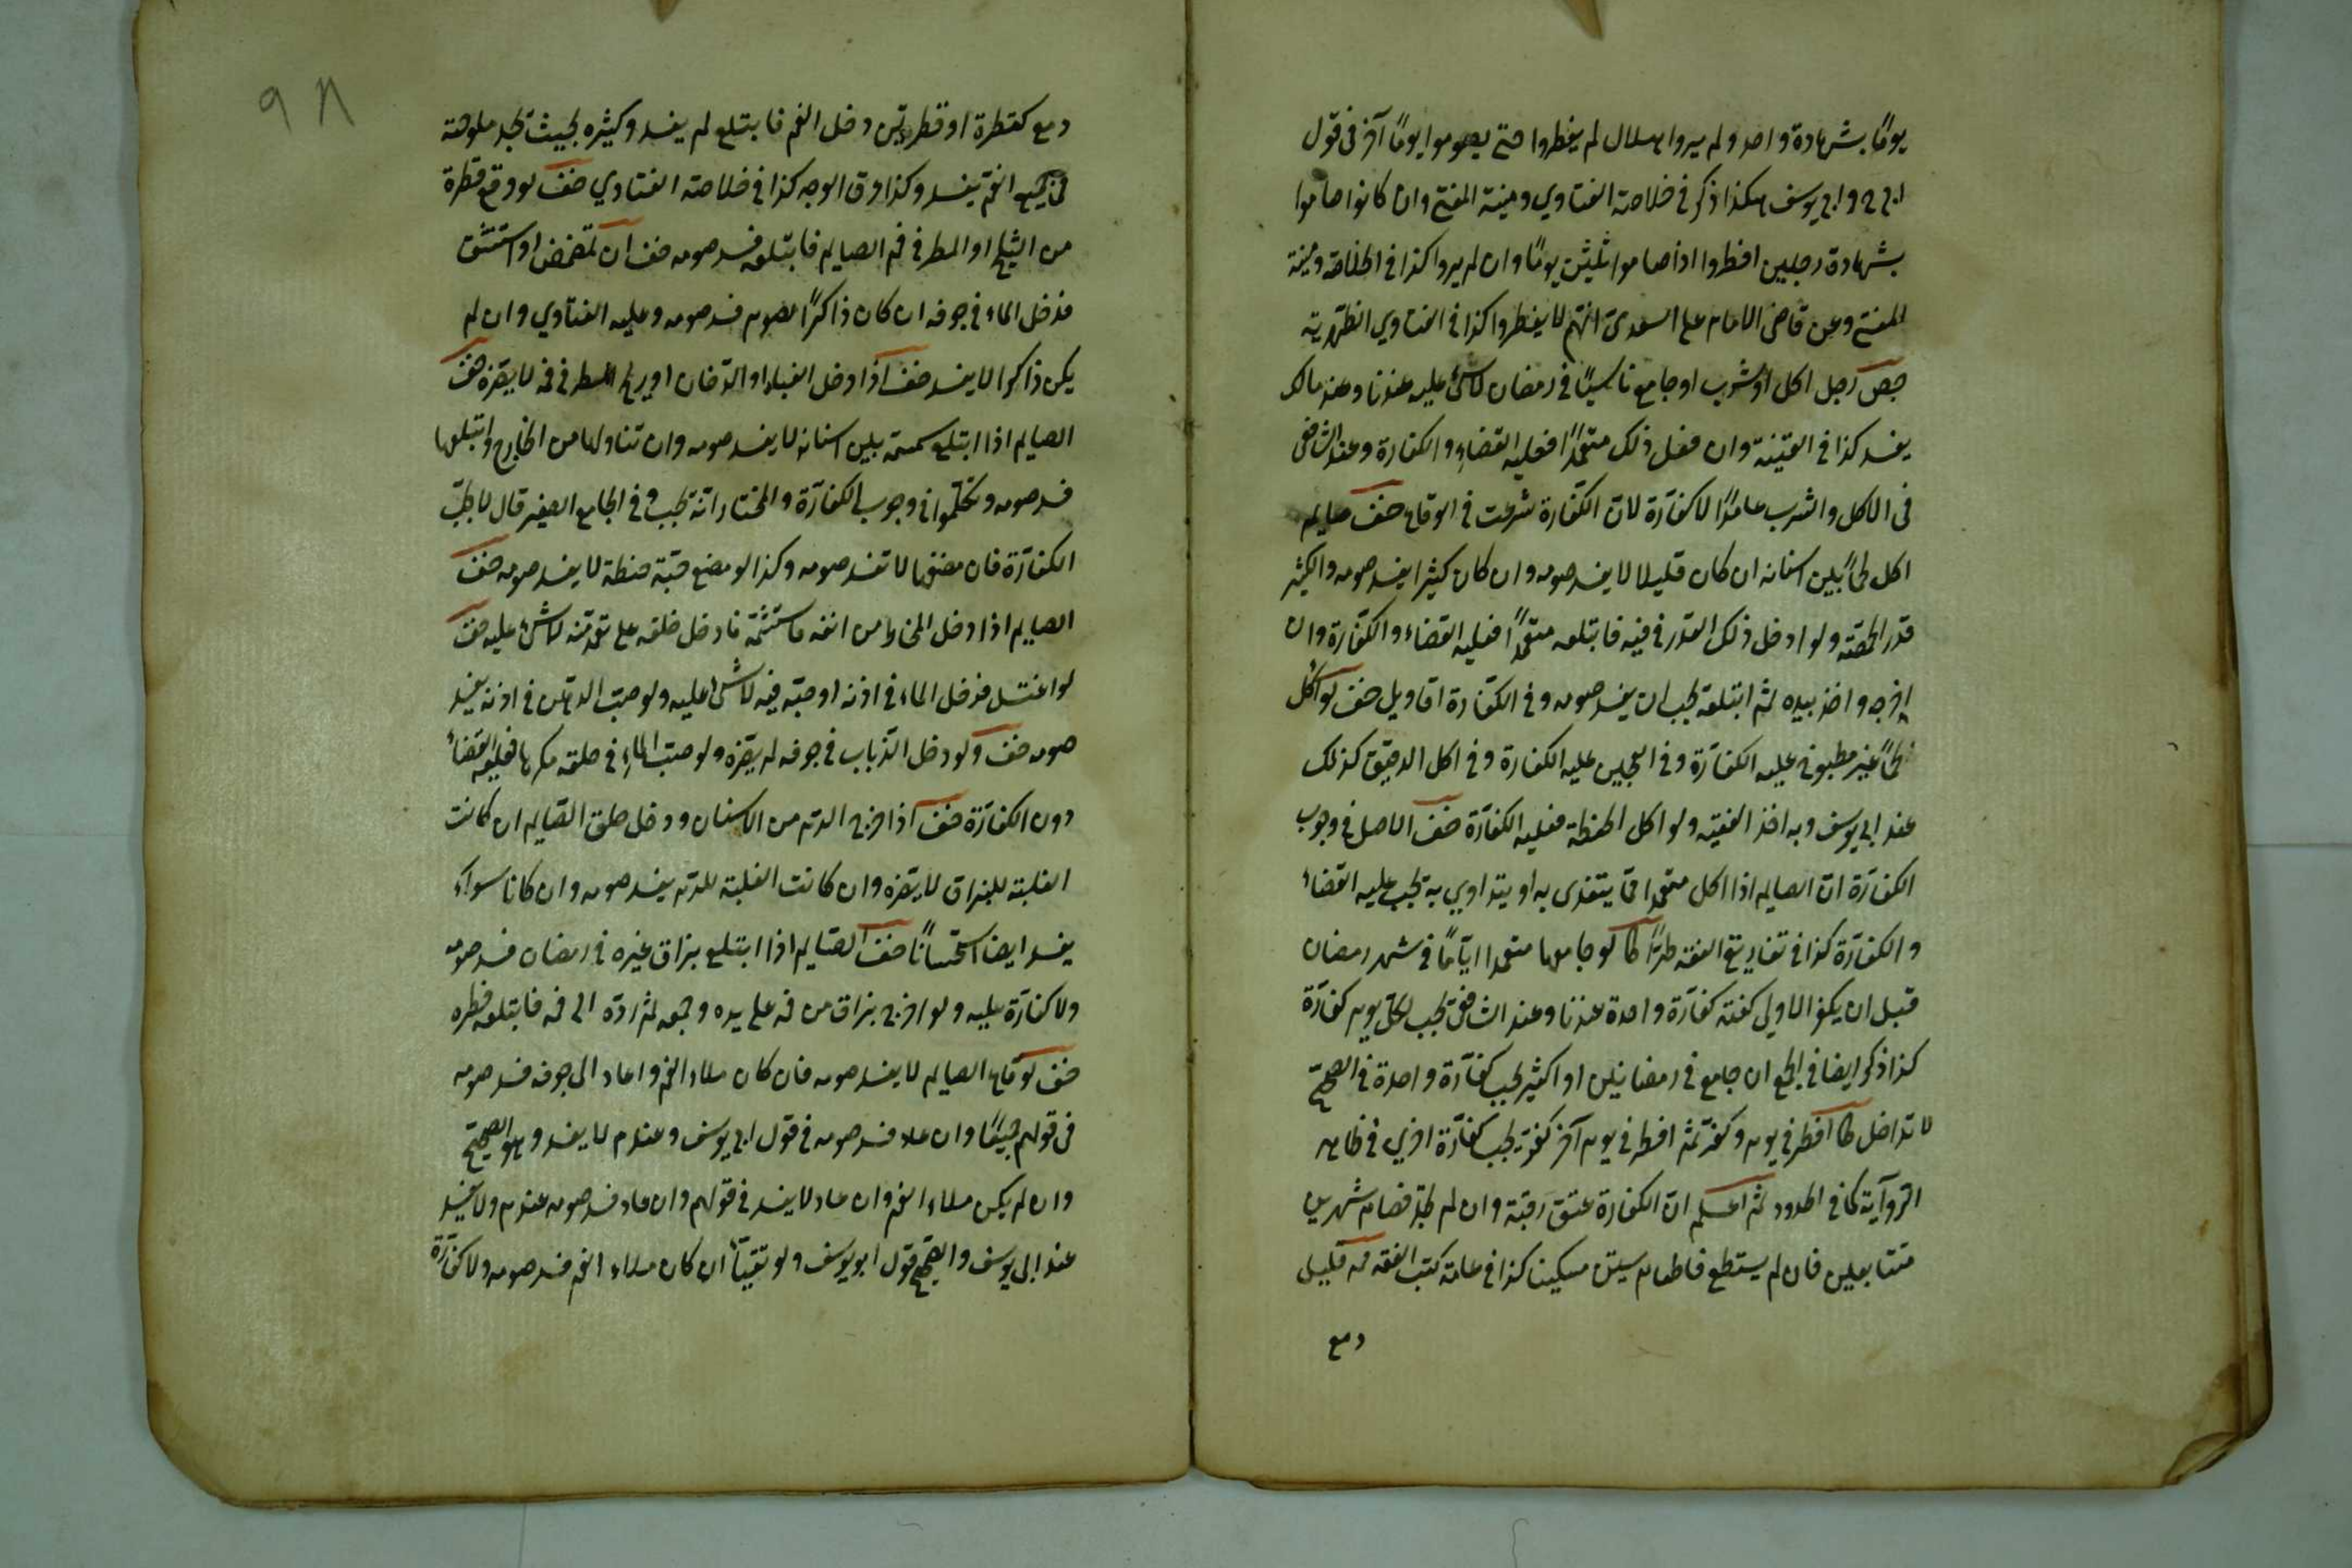 يومًا بشهادة واحد ولم يروا هلال لم يفطروا حتى يصوموا يومًا آخر فى قول
ابى ح وابى يوسف هكذا ذكر فى خلاصة الفتاوي ومنية المفتى وان كانوا صاموا
بشهادة رجلين افطروا اذا صاموا ثلثين يومًا وان لم يروا كذا فى الخلاصة ومنية
المفتى وعن قاضى الامام على السعدى انهم لا يفطروا كذا فى الفتاوي الظهرية
رجل اكل او شرب او جامع ناسيًا فى رمضان لا شئ عليه عندنا وعند مالك
يفسد كذا فى القنية وان فعل ذلك متعمدًا فعليه القضاء والكفارة وعند الشافعى
فى الاكل والشرب عامدًا لا كفارة لان الكفّارة شرعت فى الوقاع خف صايم
اكل لحمًا بين اسنانه ان كان قليلا لا يفسد صومه وان كان كثيرا يفسد صومه والكثير
قدر الحمّصة ولو ادخل ذلك القدر فى فيه فابتلعه متعمدًا فعليه القضاء والكفّارة وان
اخرجه واخذ بيده ثم ابتلعه يجب ان يفسد صومه وفى الكفّارة اقاويل خف لو اكل
لحمًا غير مطبوخ عليه الكفارة وفى العجين عليه الكفارة وفى اكل الدقيق كذلك
عند ابى يوسف وبه اخذ الفقيه ولو اكل الحنطة فعليه الكفارة خف الاصل فى وجوب
الكفارة ان الصايم اذا اكل متعمدا ممّا يتغذى به او يتداوي به يجب عليه القضاء
والكفارة كذا فى تفاريق الفقه لو جامعها متعمدا ايّامًا فى شهر رمضان
قبل ان يكفر الاولى كفته كفارة واحدة عندنا وعند الشافعى يجب لكل يوم كفارة
كذا ذكر ايضا فى الجمع ان جامع فى رمضانين او اكثر يجب كفارة واحدة فى الصحيح
لا تداخل افطر فى يوم وكفر ثم افطر فى يوم آخر كفر يجب كفّارة اخري فى ظاهر
الروآية كما فى الحدود ثم اعلم ان الكفارة عتق رقبة وان لم يجد فصام شهرين
متتابعين فان لم يستطع فاطعام ستين مسكينا كذا فى عامة كتب الفقه قليل
دمع
٩٨
دمع كقطرة او قطرتين دخل الفم فابتلع لم يفسد وكثيره بحيث يجد ملوحته
فى جميع الفم يفسد وكذا عرق الوجه كذا فى خلاصة الفتاوي خف لو وقع قطرة
من الثلج او المطر فى فم الصايم فابتلعه فسد صومه خف ان تمضمض او استنشق
فدخل الماء فى جوفه ان كان ذاكرًا لصوم فسد صومه وعليه الفتاوي وان لم
يكن ذاكرا لا يفسد خف اذا دخل الغبار او الدخان او ريح العطر فى فمه لا يضره خف
الصايم اذا ابتلع سمسمة بين اسنانه لا يفسد صومه وان تناولها من الخارج وابتلعها
فسد صومه وتكلّموا فى وجوب الكفارة والمختار انه تجب وفى الجامع الصغير قال لا يجب
الكفارة فان مضغها لا تفسد صومه وكذا لو مضغ حبّة حنطة لا يفسد صومه خف
الصايم اذا دخل المخاط من انفه فاستشمّه فادخل حلقه على تعمّد منه لا شئ عليه خف
لو اغتسل فدخل الماء فى اذنه او صبّه فيه لا شئ عليه ولو صبّ الدهن فى اذنه يفسد
صومه خف ولو دخل الذّباب فى جوفه لم يضره ولو صبّ الماء فى حلقه مكرها فعليه القضاء
دون الكفارة خف اذا خرج الدم من الاسنان ودخل حلق الصّايم ان كانت
الغلبة للبزاق لا يضره وان كانت الغلبة للدم يفسد صومه وان كانا سواء
يفسد ايضا استحسانًا خف الصّايم اذا ابتلع بزاق غيره فى رمضان فسد صومه
ولا كفارة عليه ولو اخرج بزاق من فمه على يده وجمعه ثم ردّه الى فمه فابتلعه فطره
خف لو قاء الصايم لا يفسد صومه فان كان ملاء الفم واعاد الى جوفه فسد صومه
فى قولهم جميعًا وان عاد فسد صومه فى قول ابى يوسف وعند م لا يفسد وهو الصحيح
وان لم يكن ملاء الفم وان عاد لا يفسد فى قولهم وان عاد فسد صومه عند م ولا يفسد
عند ابى يوسف والصحيح قول ابو يوسف ولو تقيّأ ان كان ملاء الفم فسد صومه ولا كفّارة